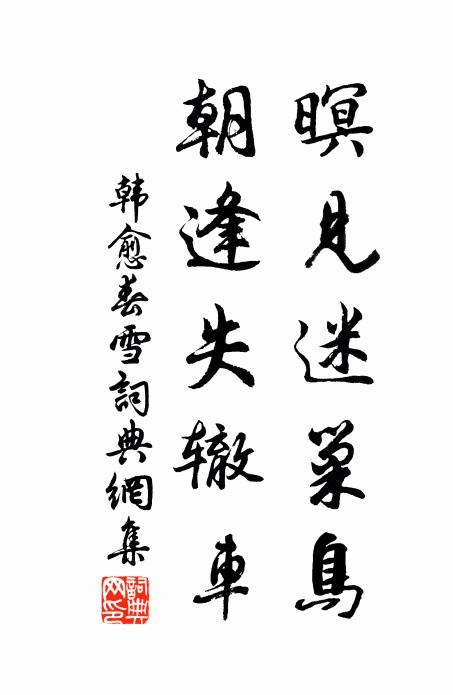 暝見迷巢鳥
朝逢失辙車
韩愈春雪詞典網集
詞典網印